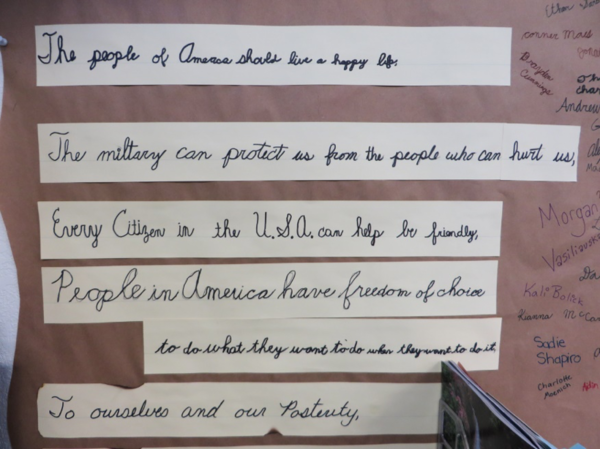 The people of America should live a happy life.
The miltary can protect us from the people who can hurt us,
Every Citizen in the U.S.A. can help be friendly,
People in America have freedom of choice
to do what they want to do when they want to do it,
To ourselves and our Posterity,
conner Mass
Cummings
Andrew
Morgan
Vasiliauskas
Kali Bolek
Kianna McCa
Sadie
Shapiro
Charlotte